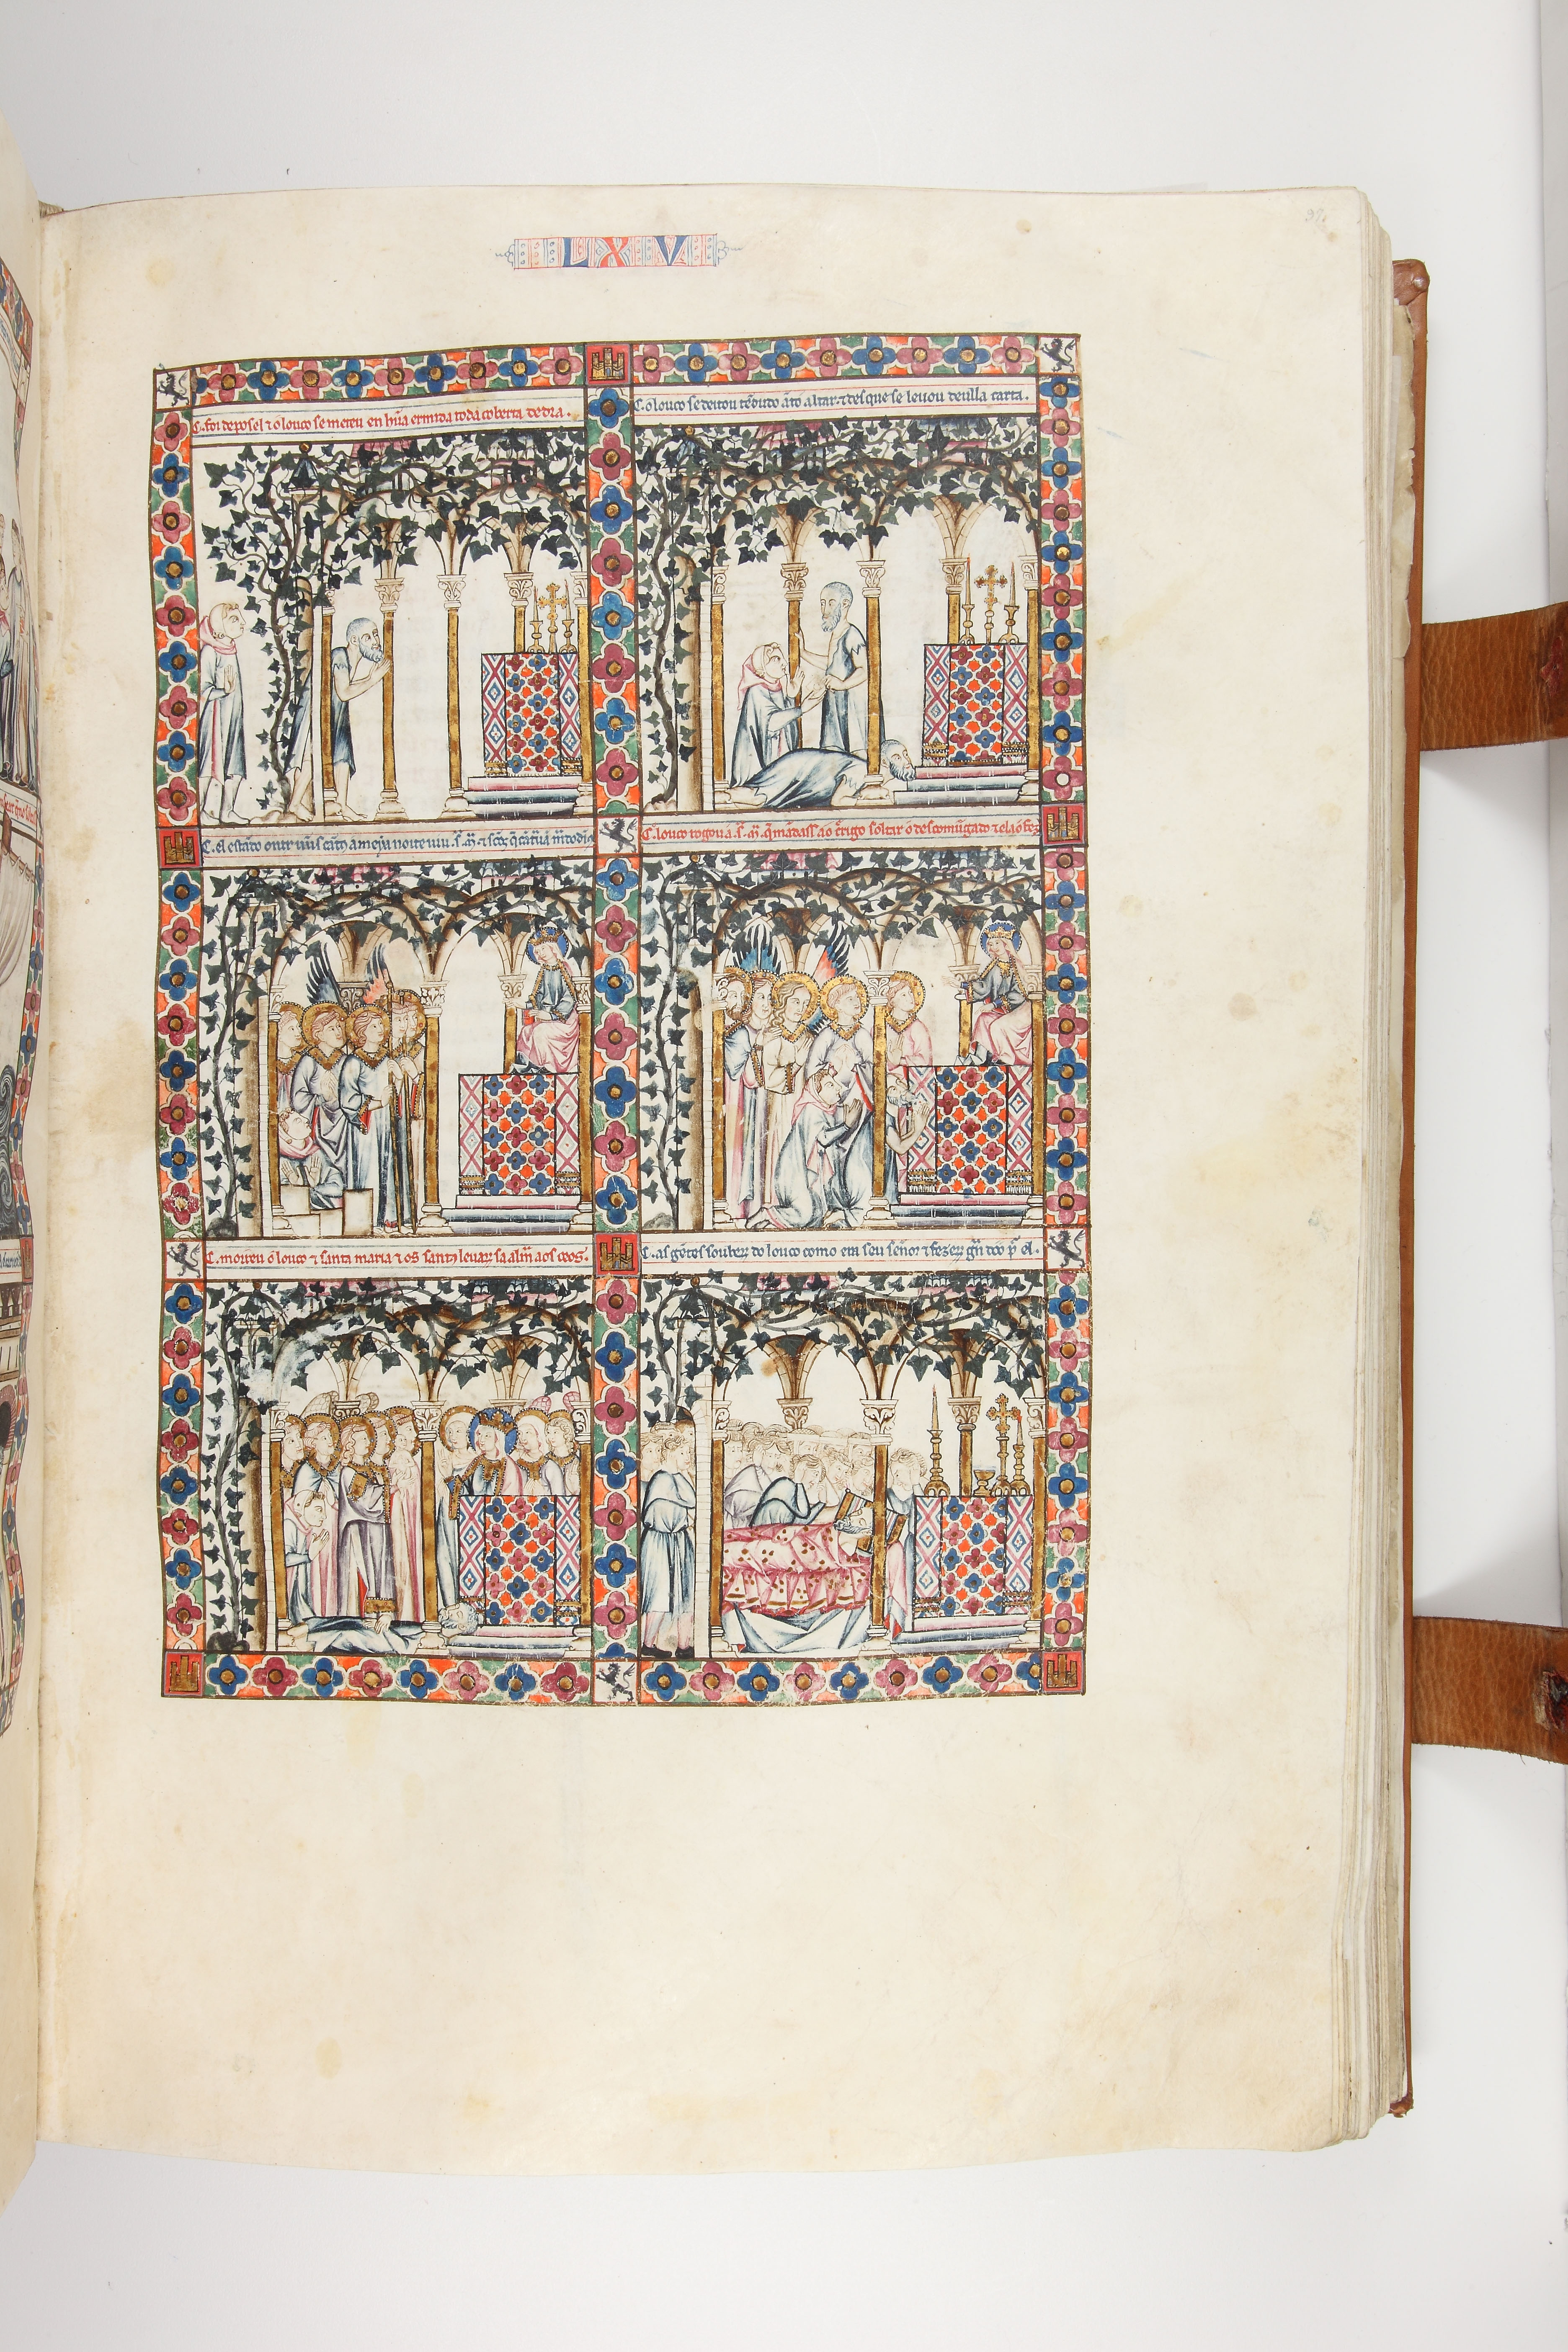 LXV
97
C. foi depos el ⁊ o louco se meteu en hũa ermida toda coberta dedra.
C. o louco se deitou tẽdudo ãto altar. ⁊ desque se leuou deulla carta.
C. el estãdo outr uũs cãtos a meya noite uiu. s̃. m̃. ⁊ scõs q̃ cãtauã
C. louco rogou a. s̃. m̃. q̃ mãdass ao cr̃igo soltar o descomũgado ⁊ ela o fez
C. morreu o louco ⁊ santa maria ⁊ os santos leuarõ sa alm̃ aos ceos.
C. as gẽtes souberõ do louco como era seu señor ⁊ fezerõ grã doo p̃ el.